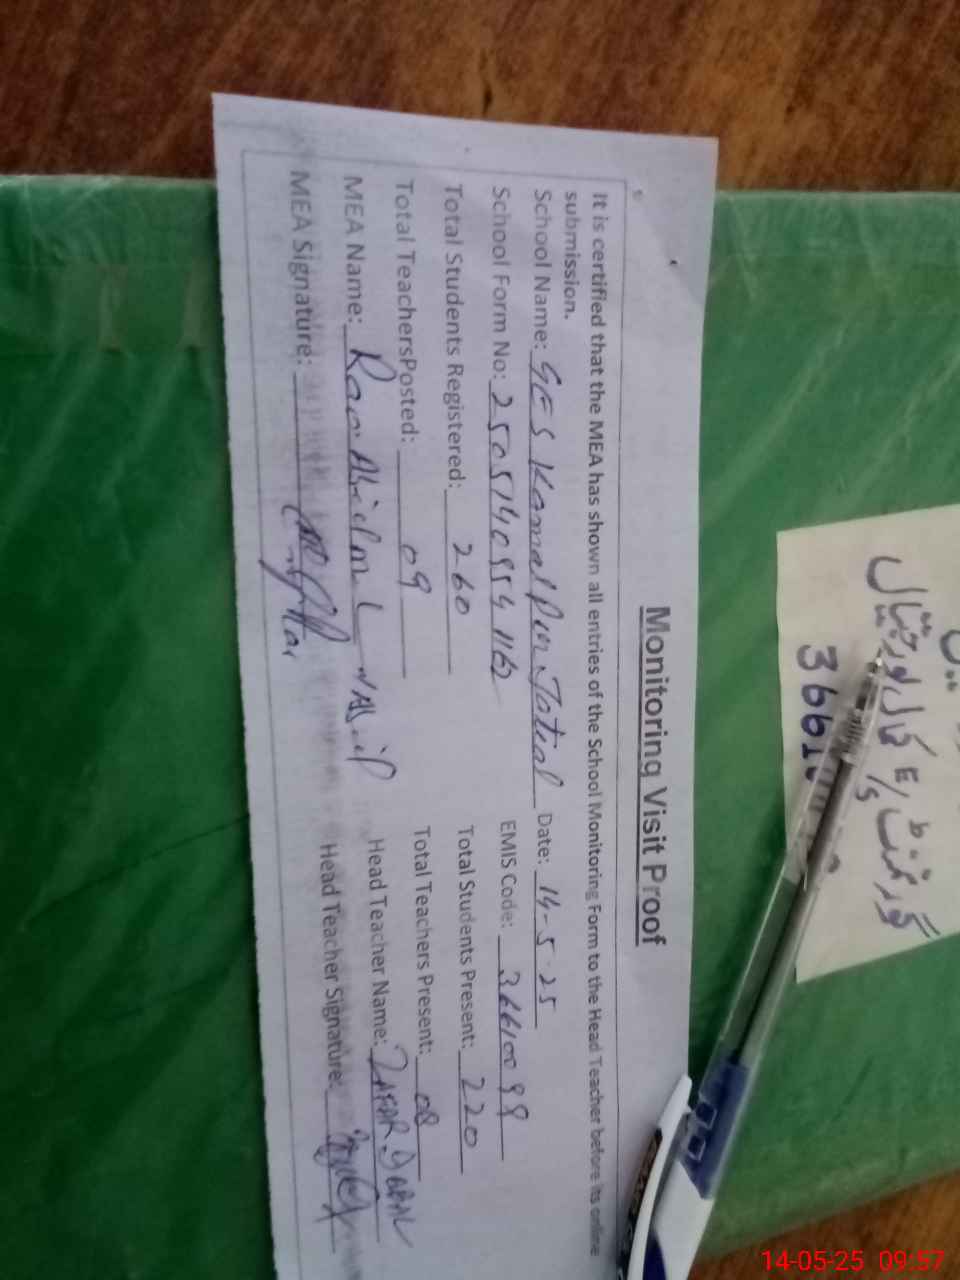 Monitoring Visit Proof
It is certified that the MEA has shown all entries of the School Monitoring Form to the Head Teacher before its online
submission.
School Name: GES Kamal Pur Jatial Date: 14-5-25
School Form No: EMIS Code:
Total Students Registered: 260 Total Students Present: 220
Total TeachersPosted: 09 Total Teachers Present: 08
MEA Name: Head Teacher Name: ZAFAR IQBAL
MEA Signature: Head Teacher Signature:
گورنمنٹ E/S کمال پور جٹیال
14-05-25 09:57